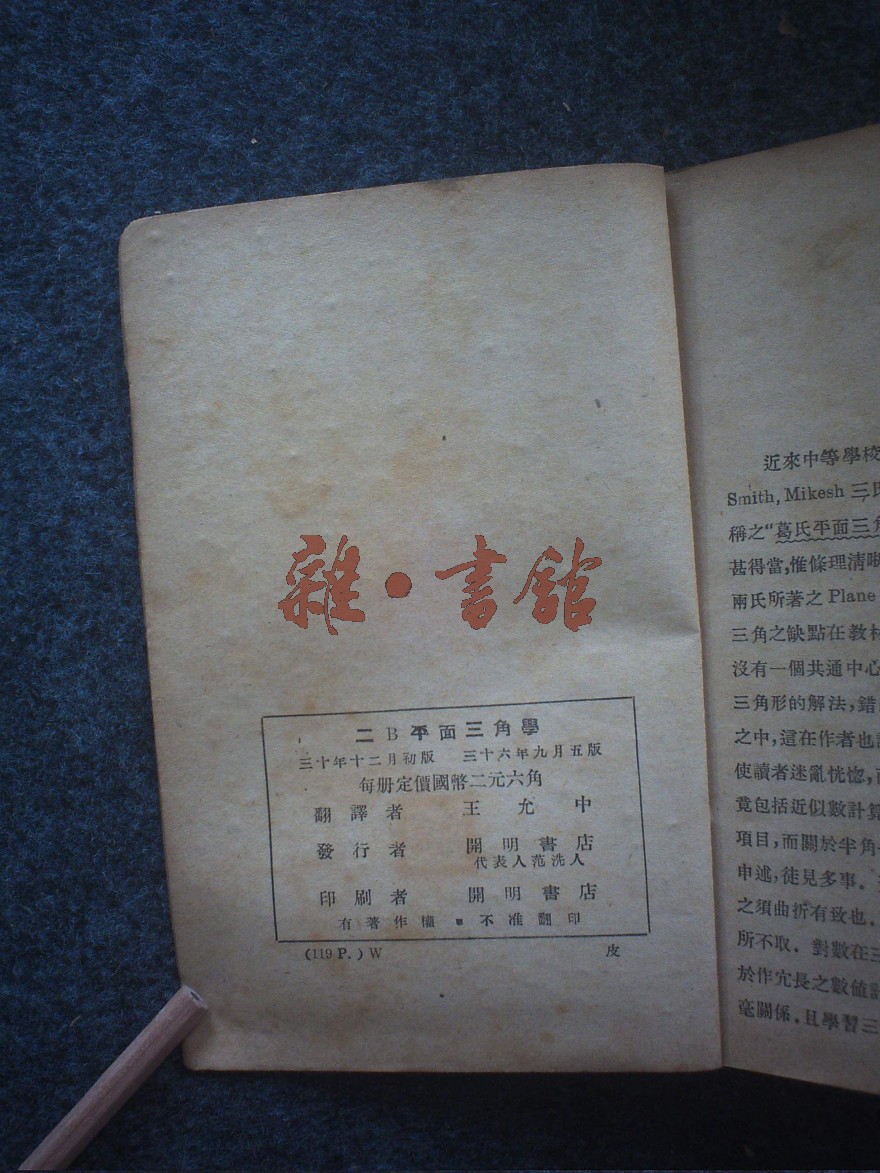 雜·書館
二B平面三角學
三十年十二月初版 三十六年九月五版
每册定價國幣二元六角
翻譯者 王允中
發行者 開明書店
代表人范洗人
印刷者 開明書店
有著作權■不准翻印
(119 P.) W 皮
近來中等學校
Smith, Mikesh 三氏
稱之“葛氏平面三角
甚得當,惟條理清晰
兩氏所著之 Plane
三角之缺點在教材
沒有一個共通中心
三角形的解法,錯
之中,這在作者也
使讀者迷亂恍惚,而
竟包括近似數計算
項目,而關於半角
申述,徒見多事.
之須曲折有致也.
所不取. 對數在三
於作冗長之數值計
毫關係.且學習三